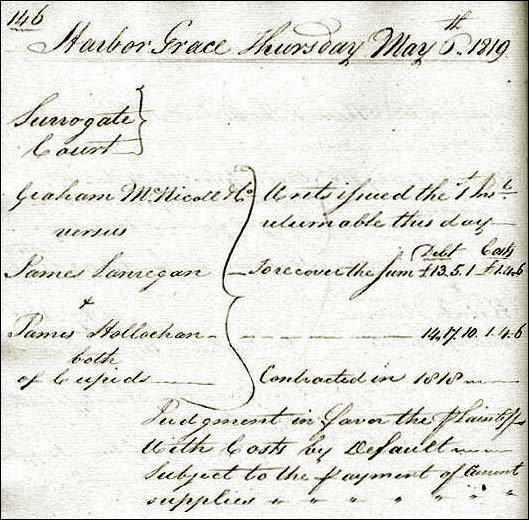 146
Harbor Grace Thursday May 6th. 1819
Surrogate
Court
Graham McNicoll & Co Writs issued the 1st Inst
returnable this day
versus
Debt Costs
James Lanregan To recover the Sum £13.5.1 £1.4.6
&
James Hollochan 14.17.10. 1.4.6
both
of Cupids Contracted in 1818
Judgment in favor the Plaintiffs
With Costs by Default
Subject to the payment of Current
supplies